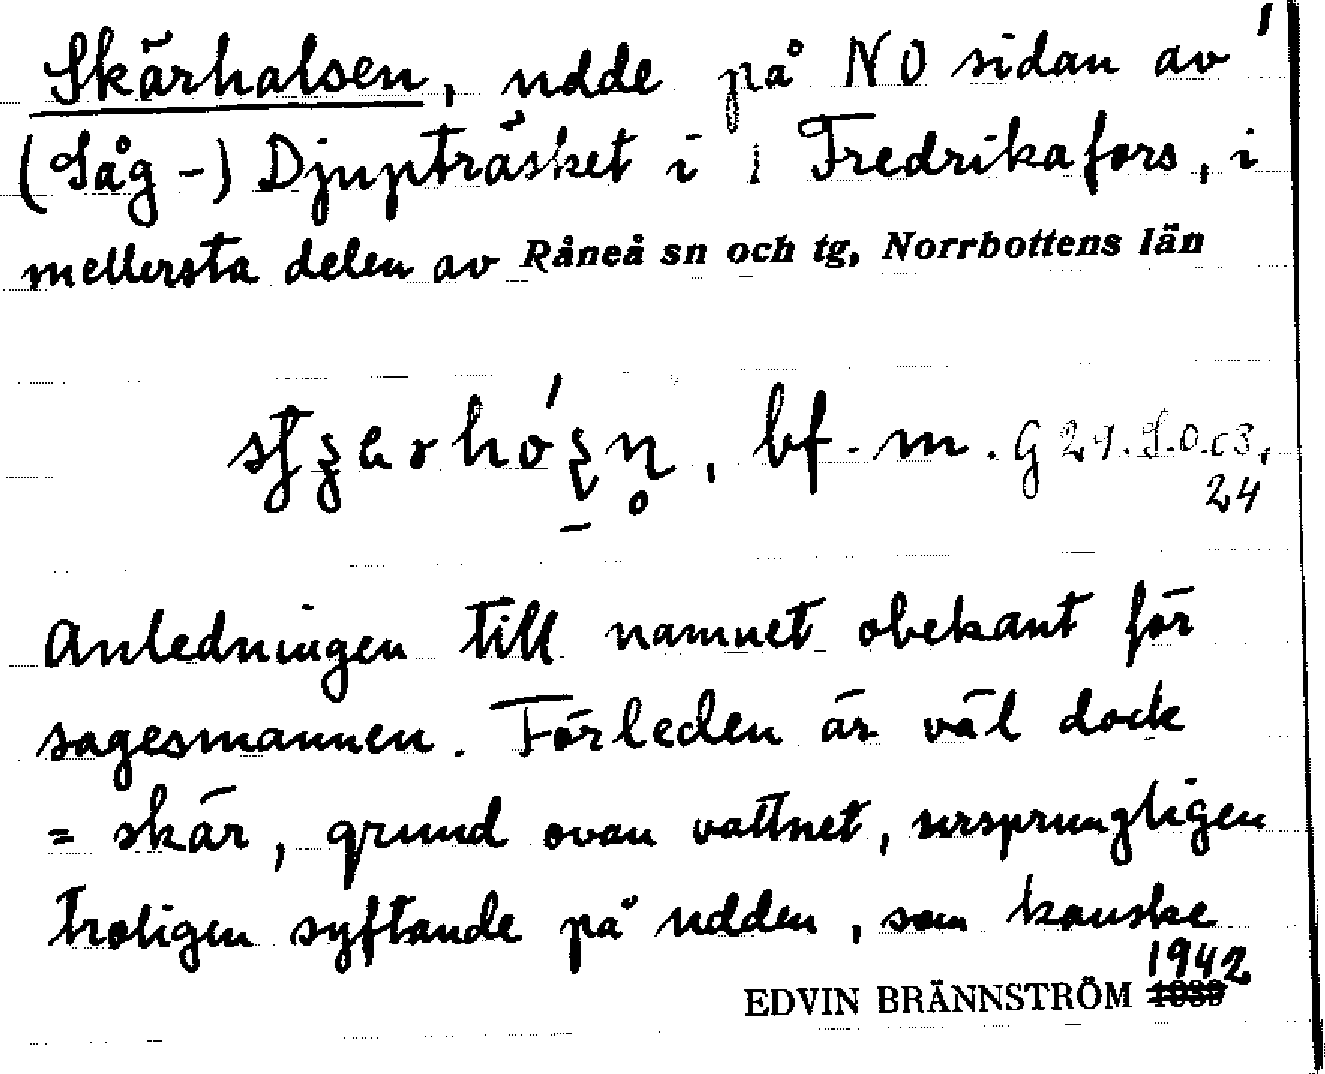 1
Skärhalsen, udde på NO sidan av
(Såg-) Djupträsket i i Fredrikafors, i
mellersta delen av Råneå sn och tg, Norrbottens län
bf. m.
24
Anledningen till namnet obekant för
sagesmannen. Förleden är väl dock
= skär, grund ovan vattnet, ursprungligen
troligen syftande på udden, som kanske
1942
EDVIN BRÄNNSTRÖM 1939